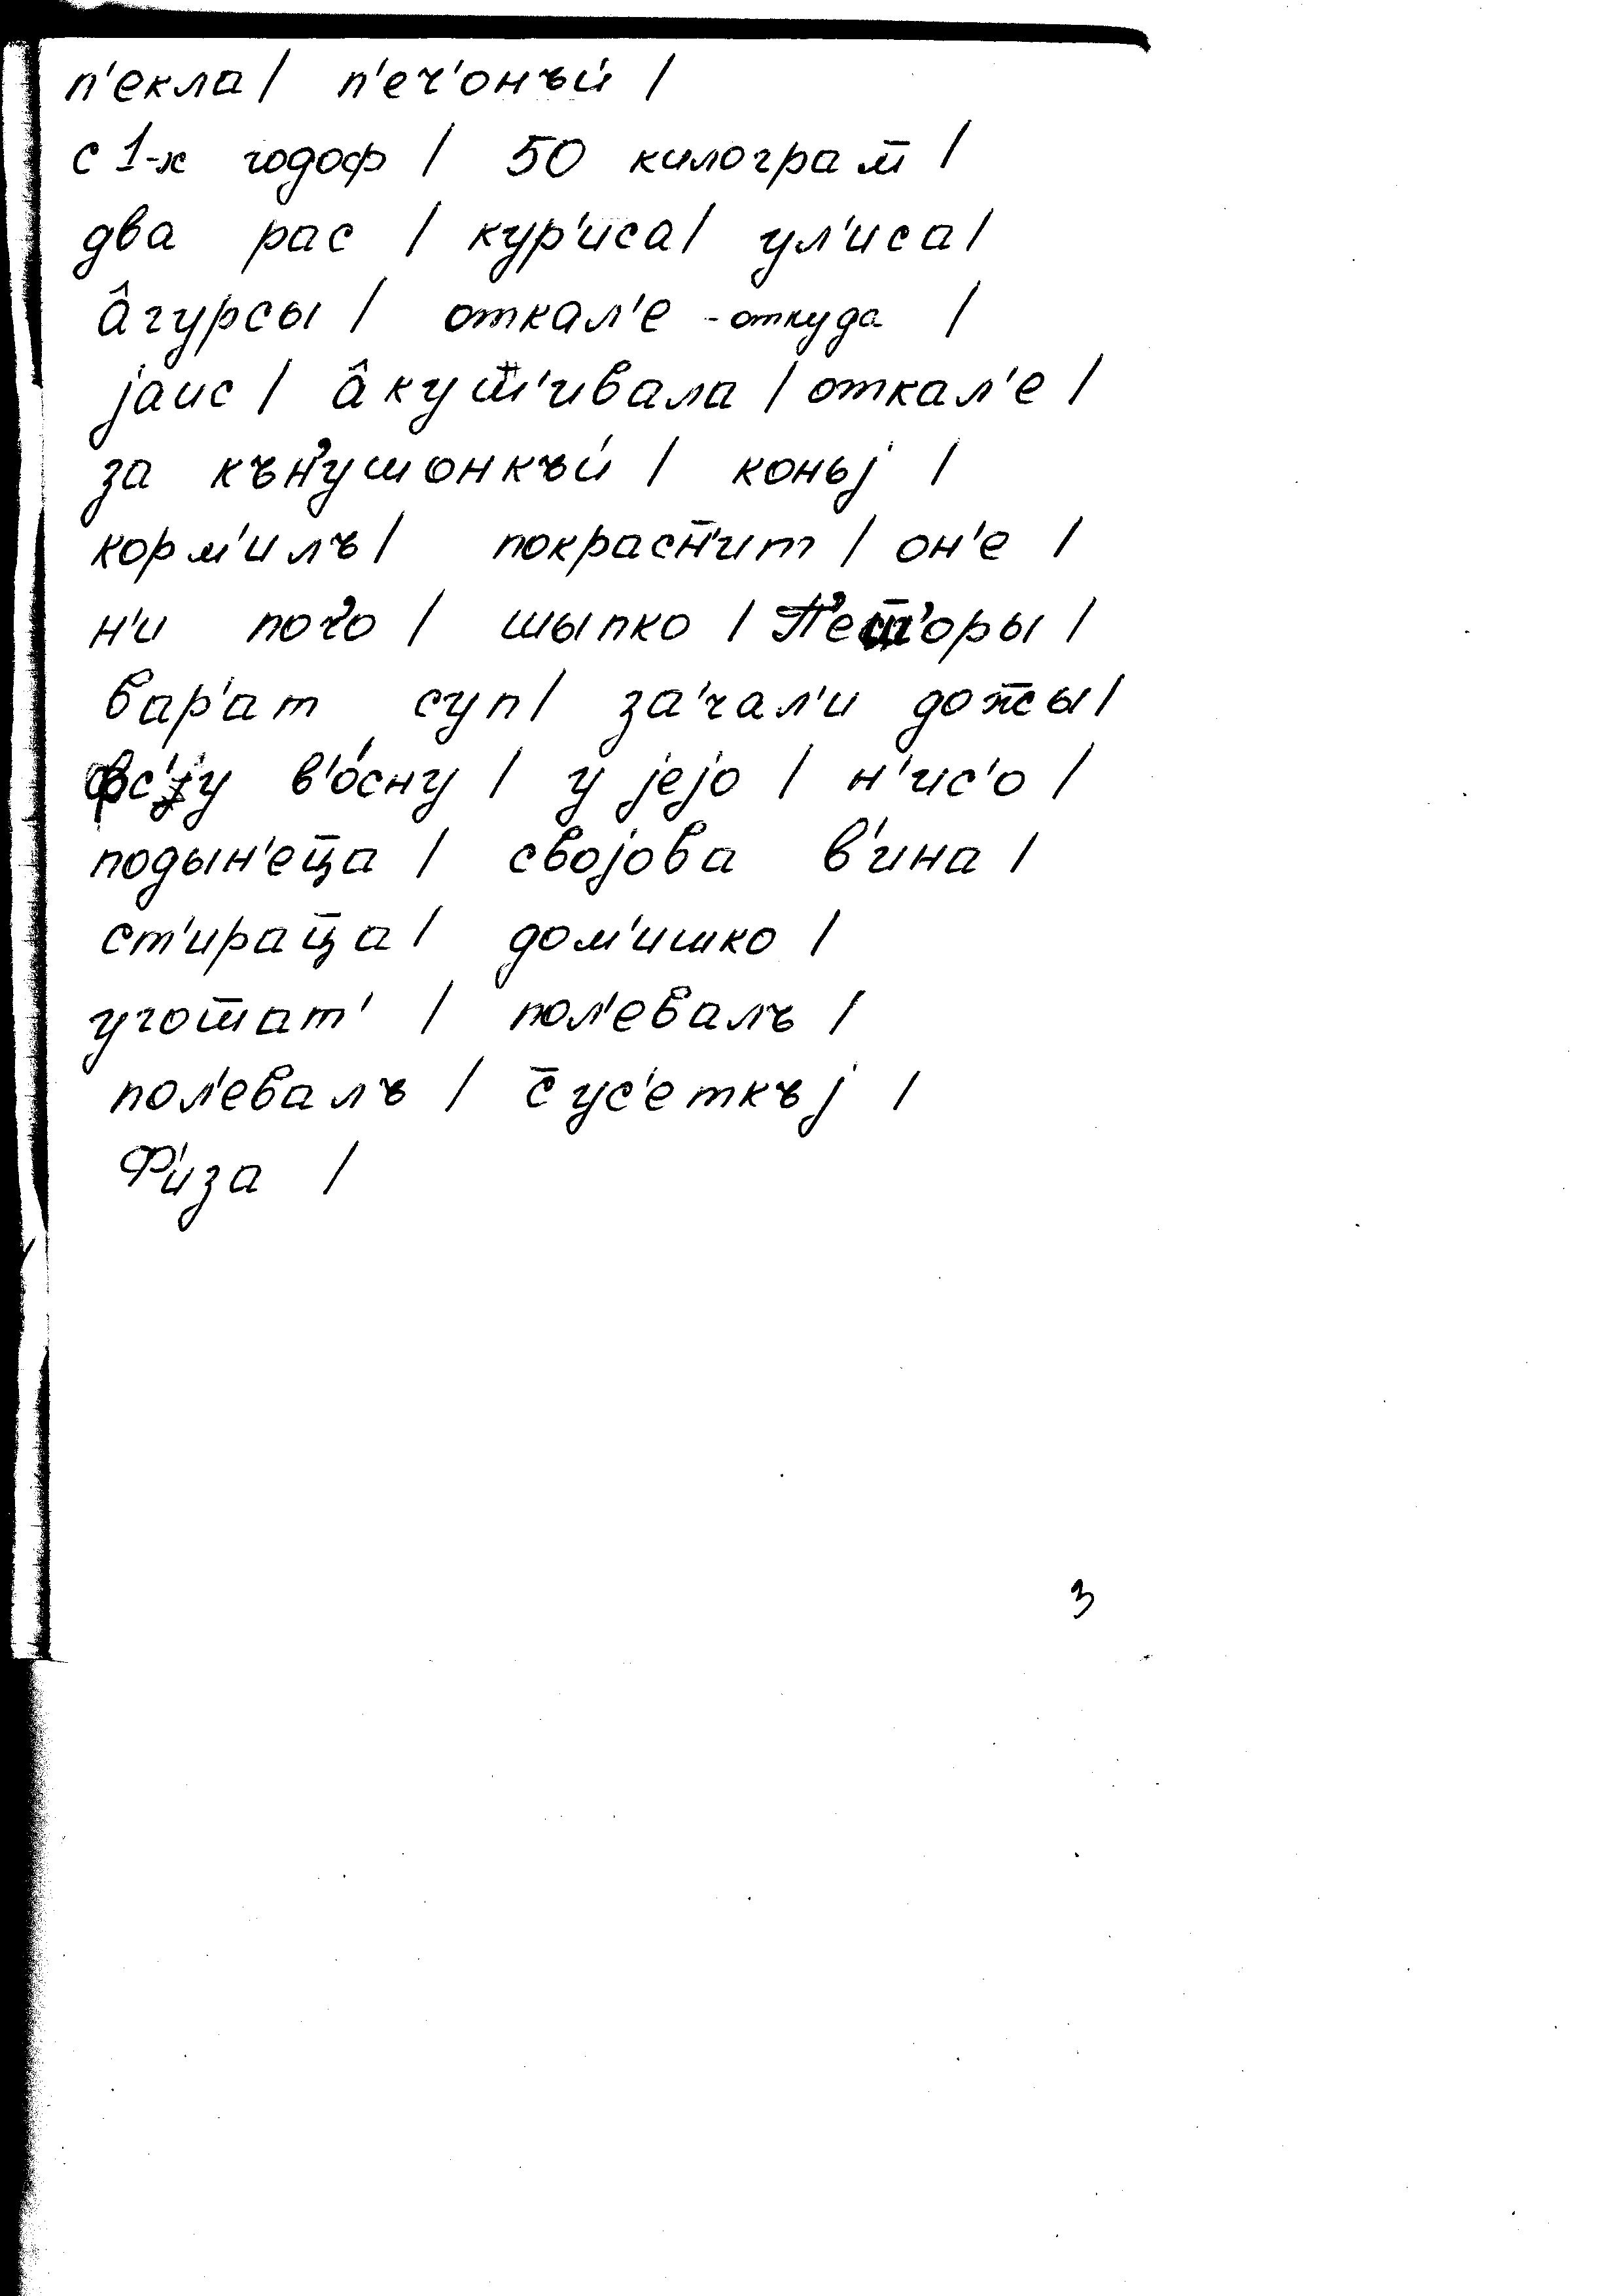 п'екла | п'еч'онъй |
с 1-х годоф | 50 килограм̄ |
два рас | кур'иса | ул'иса |
а̂гурсы | откал'е - откуда |
јаис | а̂куш̄'ивала | откал'е |
за кън'ушонкъй | коньј |
корм'илъ | покрасн̄'ит | он'е |
н'и поч'о | шыпко |
вар'ат суп | за'чал'и дож̄ы |
в'о́сну | у јејо | н'ис'о |
подын'ец̄а | својова в'ина |
ст'ирац̄а | дом'ишко |
угот̄ат' | пол'евалъ |
пол'евалъ | с̄ус'еткъј |
Ф'иза |
3